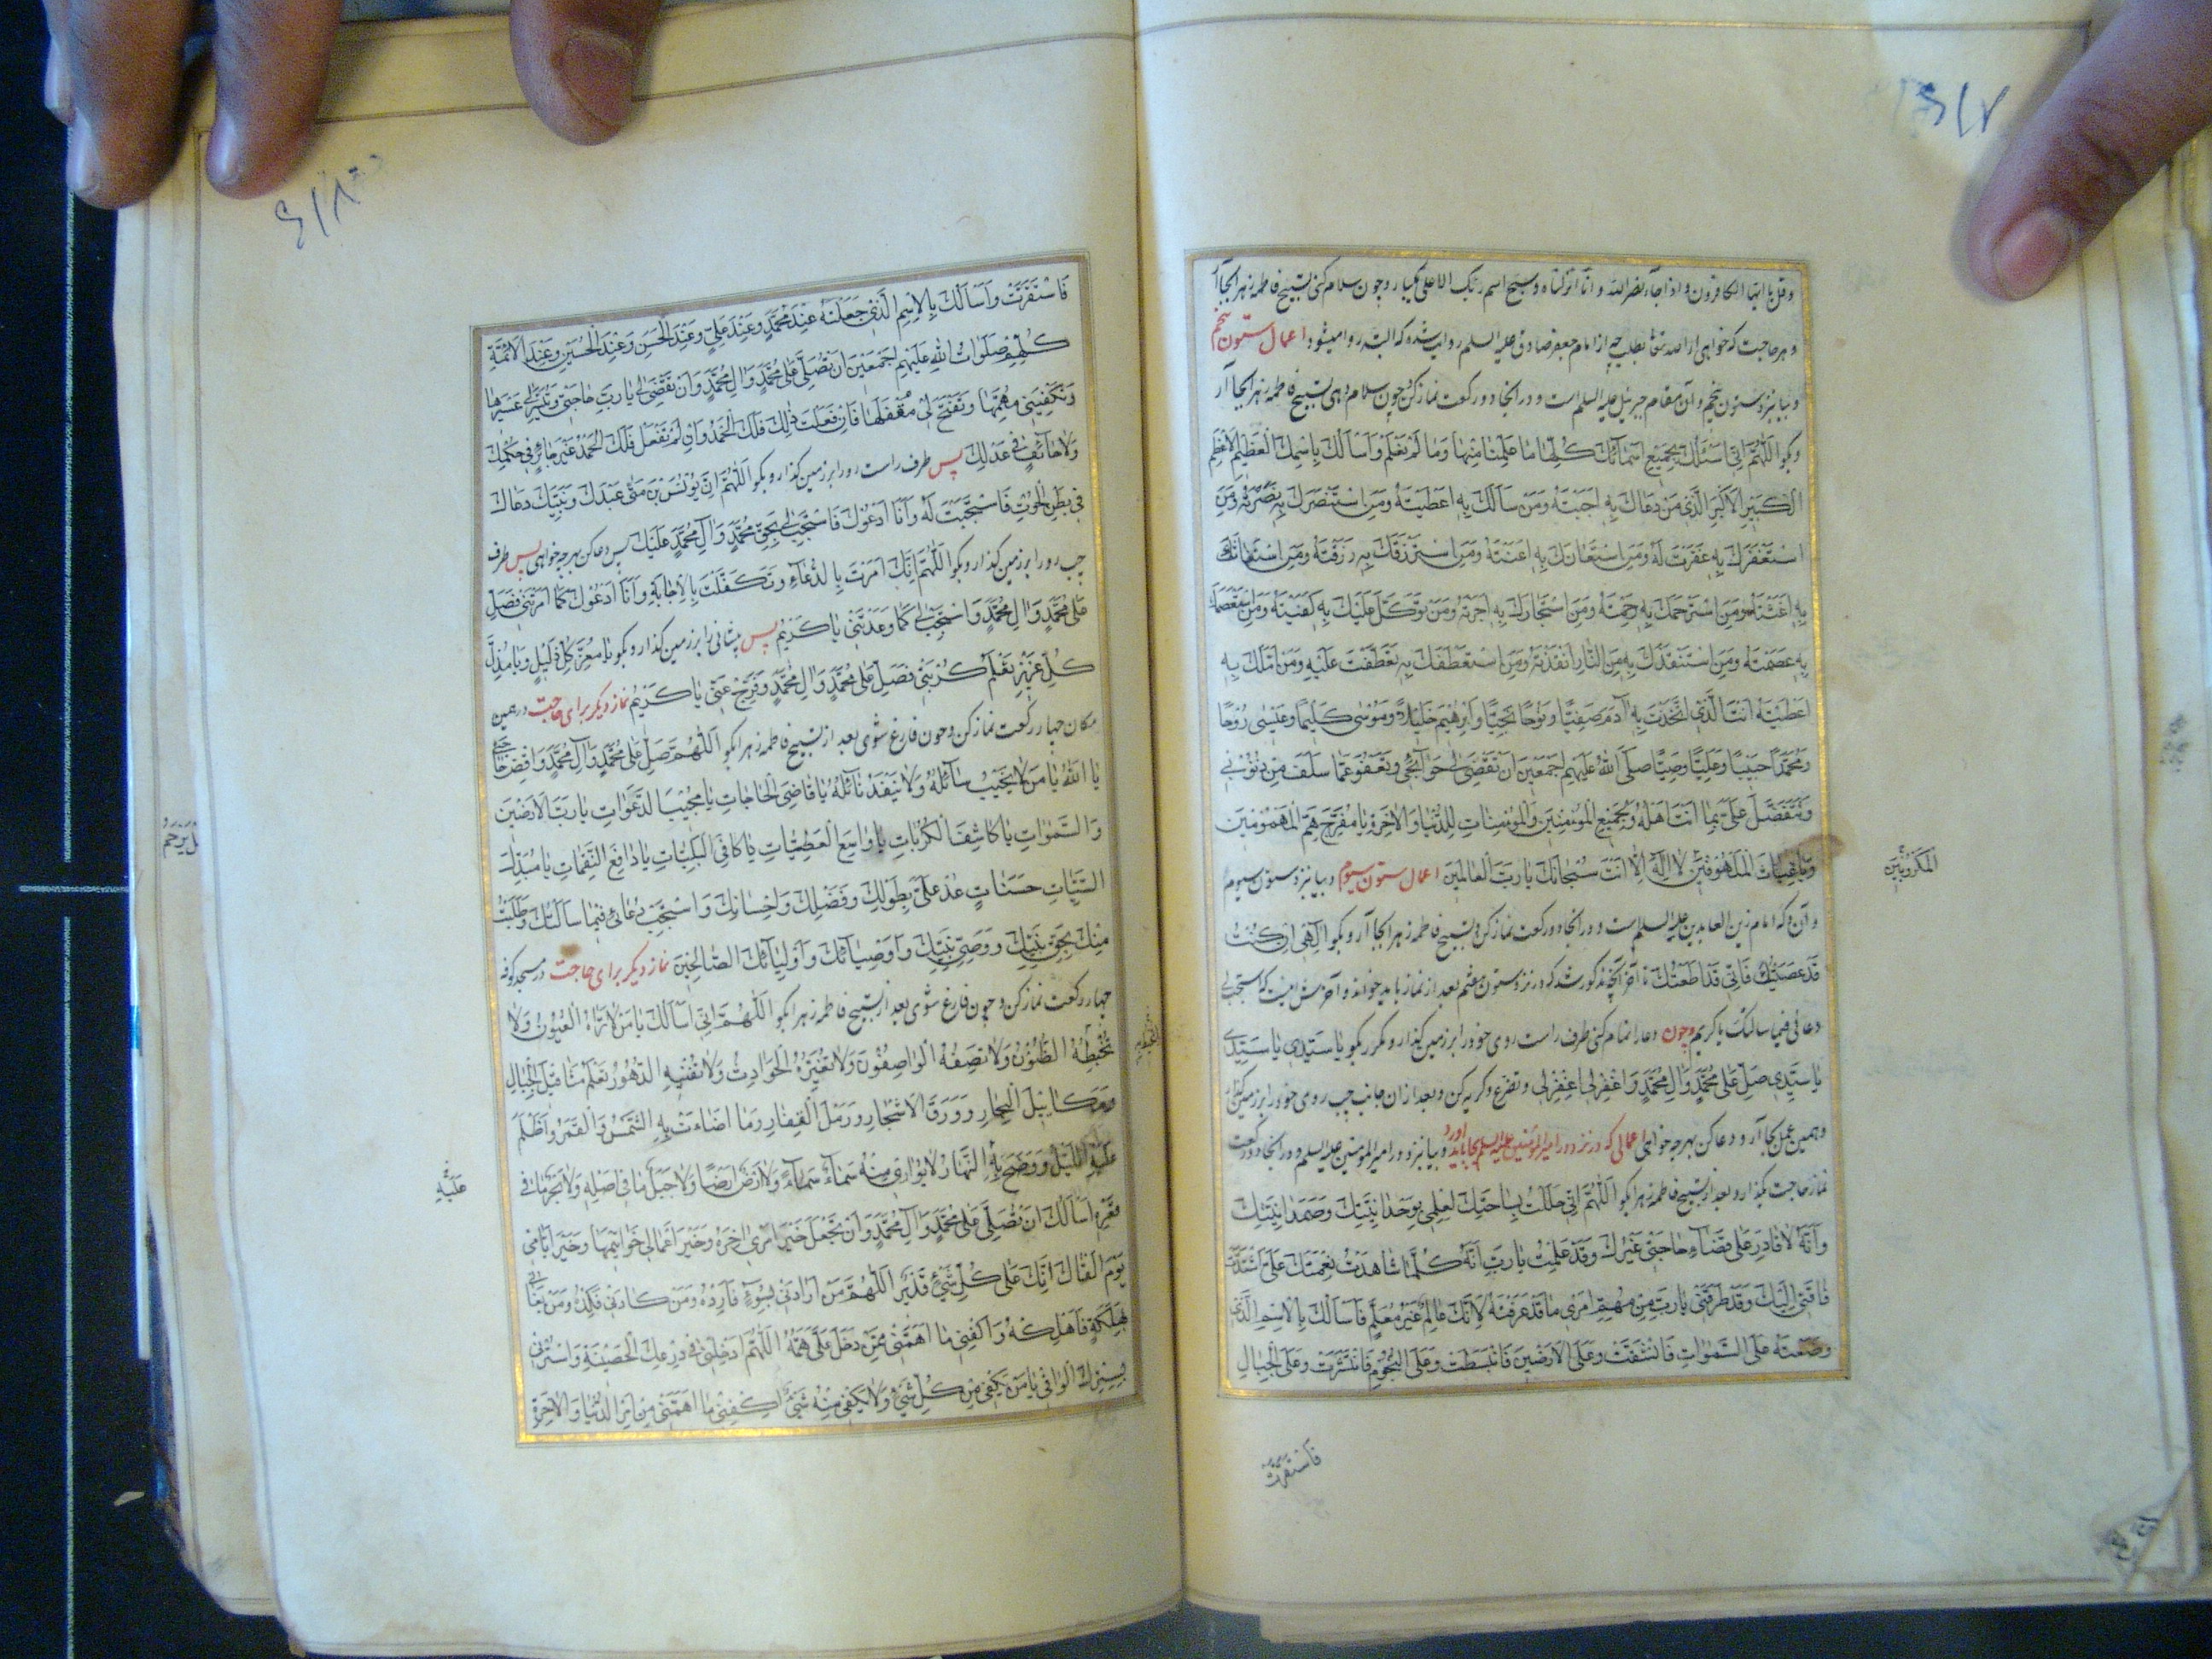 وقل یا ایها الکافرون و اذا جاء نصرالله و انا انزلناه و سبح اسم ربک الاعلی یکبار و چون سلام کنی تسبیح فاطمه زهرا بجا آر
و هر حاجت که خواهی از الله تعالی بطلب چه از امام جعفر صادق علیه السلم روایت شده که البته روا میشود اعمال ستون پنجم
و بیا بنزد ستون پنجم و آن مقام جبرئیل علیه السلم است و در آنجا دو رکعت نماز کن و چون سلام دهی تسبیح فاطمه زهرا بجا آر
و بگو اَللّٰهُمَّ اِنّی اَسْئَلُكَ بِجَمیعِ اَسْمائِكَ كُلِّها ما عَلِمْنا مِنْها وَما لَمْ نَعْلَمْ وَاَسْاَلُكَ بِاسْمِكَ الْعَظیمِ الْاَعْظَمِ
الْكَبیرِ الْاَكْبَرِ الَّذی مَنْ دَعاكَ بِهِ اَجَبْتَهُ وَمَنْ سَاَلَكَ بِهِ اَعْطَیْتَهُ وَمَنِ اسْتَنْصَرَكَ بِهِ نَصَرْتَهُ وَمَنِ
اسْتَغْفَرَكَ بِهِ غَفَرْتَ لَهُ وَمَنِ اسْتَعانَكَ بِهِ اَعَنْتَهُ وَمَنِ اسْتَرْزَقَكَ بِهِ رَزَقْتَهُ وَمَنِ اسْتَغاثَكَ
بِهِ اَغَثْتَهُ وَمَنِ اسْتَرْحَمَكَ بِهِ رَحِمْتَهُ وَمَنِ اسْتَجارَكَ بِهِ اَجَرْتَهُ وَمَنْ تَوَكَّلَ عَلَیْكَ بِهِ كَفَیْتَهُ وَمَنِ اسْتَعْصَمَكَ
بِهِ عَصَمْتَهُ وَمَنِ اسْتَنْقَذَكَ بِهِ مِنَ النّارِ اَنْقَذْتَهُ وَمَنِ اسْتَعْطَفَكَ بِهِ تَعَطَّفْتَ عَلَیْهِ وَمَنْ اَمَّلَكَ بِهِ
اَعْطَیْتَهُ اَنْتَ الَّذی اتَّخَذْتَ بِهِ آدَمَ صَفِیًّا وَنُوحًا نَجِیًّا وَاِبْرٰهیمَ خَلیلًا وَمُوسٰی كَلیمًا وَعیسٰی رُوحًا
وَمُحَمَّدًا حَبیبًا وَعَلِیًّا وَصِیًّا صَلَّی اللهُ عَلَیْهِمْ اَجْمَعینَ اَنْ تَقْضِیَ لی حَوآئِجی وَتَعْفُوَ عَمّا سَلَفَ مِنْ ذُنُوبی
وَتَتَفَضَّلَ عَلَیَّ بِما اَنْتَ اَهْلُهُ وَلِجَمیعِ الْمُؤْمِنینَ وَالْمُؤْمِناتِ لِلدُّنْیا وَالْاٰخِرَةِ یا مُفَرِّجَ هَمِّ الْمَهْمُومینَ
وَیا غِیاثَ الْمَلْهُوفینَ لا اِلٰهَ اِلّا اَنْتَ سُبْحانَكَ یا رَبَّ الْعالَمینَ اعمال ستون سیوم و بیا بنزد ستون سیوم
المَكْرُوبینَ
و آن دکه امام زین العابدین علیه السلم است و در آنجا دو رکعت نماز کن و تسبیح فاطمه زهرا بجا آر و بگو اِلٰهی اِنْ كُنْتُ
قَدْ عَصَیْتُكَ فَاِنّی قَدْ اَطَعْتُكَ تا آخر آنچه مذکور شد که در نزد ستون هفتم بعد از نماز باید خواند و آخرش اینست که استجب لی
دعائی فیما سالتک یا کریم و چون دعا را تمام کنی طرف راست روی خود را بر زمین گذار و مکرر بگو یا سَیِّدی یا سَیِّدی
یا سَیِّدی صَلِّ عَلٰی مُحَمَّدٍ وَاٰلِ مُحَمَّدٍ وَاغْفِرْ لی اغْفِرْ لی و تضرع و گریه کن و بعد از آن جانب چپ روی خود را بر زمین گذار
و همین عمل بجا آر و دعا کن بهر چه خواهی اعمالی که در نزد در امیر المؤمنین علیه السلم بجا باید آورد و بیا بنزد در امیر المؤمنین علیه السلم و در آنجا دو رکعت
نماز حاجت بگذار و بعد از تسبیح فاطمه زهرا بگو اَللّٰهُمَّ اِنّی حَلَلْتُ بِساحَتِكَ لِعِلْمی بِوَحْدانِیَّتِكَ وَصَمَدانِیَّتِكَ
وَاَنَّهُ لا قادِرَ عَلٰی قَضآءِ حاجَتی غَیْرُكَ وَقَدْ عَلِمْتُ یا رَبِّ اَنَّهُ كُلَّما شاهَدْتُ نِعْمَتَكَ عَلَیَّ اشْتَدَّتْ
فاقَتی اِلَیْكَ وَقَدْ طَرَقَنی یا رَبِّ مِنْ مُهِمِّ اَمْری ما قَدْ عَرَفْتَهُ لِاَنَّكَ عالِمٌ غَیْرُ مُعَلَّمٍ فَاَسْاَلُكَ بِالْاِسْمِ الَّذی
وَضَعْتَهُ عَلَی السَّمٰواتِ فَانْشَقَّتْ وَعَلَی الْاَرَضینَ فَانْبَسَطَتْ وَعَلَی النُّجُومِ فَانْتَثَرَتْ وَعَلَی الْجِبالِ
فَاسْتَقَرَّتْ
فَاسْتَقَرَّتْ وَاَسْاَلُكَ بِالْاِسْمِ الَّذی جَعَلْتَهُ عِنْدَ مُحَمَّدٍ وَعِنْدَ عَلِیٍّ وَعِنْدَ الْحَسَنِ وَعِنْدَ الْحُسَیْنِ وَعِنْدَ الْاَئِمَّةِ
كُلِّهِمْ صَلَواتُ اللهِ عَلَیْهِمْ اَجْمَعینَ اَنْ تُصَلِّیَ عَلٰی مُحَمَّدٍ وَاٰلِ مُحَمَّدٍ وَاَنْ تَقْضِیَ لی یا رَبِّ حاجَتی وَتُیَسِّرَ لی عَسیرَها
وَتَكْفِیَنی مُهِمَّها وَتَفْتَحَ لی مُقْفَلَها فَاِنْ فَعَلْتَ ذٰلِكَ فَلَكَ الْحَمْدُ وَاِنْ لَمْ تَفْعَلْ فَلَكَ الْحَمْدُ غَیْرَ جائِرٍ فی حُكْمِكَ
وَلا حآئِفٍ فی عَدْلِكَ پس طرف راست رو را بر زمین گذار و بگو اَللّٰهُمَّ اِنَّ یُونُسَ بْنَ مَتّٰی عَبْدَكَ وَنَبِیَّكَ دَعاكَ
فی بَطْنِ الْحُوتِ فَاسْتَجَبْتَ لَهُ وَاَنَا اَدْعُوكَ فَاسْتَجِبْ لی بِحَقِّ مُحَمَّدٍ وَاٰلِ مُحَمَّدٍ عَلَیْكَ پس دعا کن بهر چه خواهی پس طرف
چپ رو را بر زمین گذار و بگو اَللّٰهُمَّ اِنَّكَ اَمَرْتَ بِالدُّعآءِ وَتَكَفَّلْتَ بِالْاِجابَةِ وَاَنَا اَدْعُوكَ كَما اَمَرْتَنی فَصَلِّ
عَلٰی مُحَمَّدٍ وَاٰلِ مُحَمَّدٍ وَاسْتَجِبْ لی كَما وَعَدْتَنی یا كَریمُ پس پیشانی را بر زمین گذار و بگو یا مُعِزَّ كُلِّ ذَلیلٍ وَیا مُذِلَّ
كُلِّ عَزیزٍ تَعْلَمُ كُرْبَتی فَصَلِّ عَلٰی مُحَمَّدٍ وَاٰلِ مُحَمَّدٍ وَفَرِّجْ عَنّی یا كَریمُ نماز دیگر برای حاجت در همین
مکان چهار رکعت نماز کن و چون فارغ شوی بعد از تسبیح فاطمه زهرا بگو اَللّٰهُمَّ صَلِّ عَلٰی مُحَمَّدٍ وَاٰلِ مُحَمَّدٍ وَاقْضِ حاجَتی
یا اَللهُ یا مَنْ لا یَخیبُ سآئِلُهُ وَلا یَنْفَدُ نآئِلُهُ یا قاضِیَ الْحاجاتِ یا مُجیبَ الدَّعَواتِ یا رَبَّ الْاَرَضینَ
وَالسَّمٰواتِ یا كاشِفَ الْكُرُباتِ یا واسِعَ الْعَطِیّاتِ یا كافِیَ الْبَلِیّاتِ یا دافِعَ النَّقِماتِ یا مُبَدِّلَ
السَّیِّئاتِ حَسَناتٍ عُدْ عَلَیَّ بِطَوْلِكَ وَفَضْلِكَ وَاِحْسانِكَ وَاسْتَجِبْ دُعائی فیما سَاَلْتُكَ وَطَلَبْتُ
مِنْكَ بِحَقِّ نَبِیِّكَ وَوَصِیِّ نَبِیِّكَ وَاَوْصِیائِكَ وَاَوْلِیائِكَ الصّالِحینَ نماز دیگر برای حاجت در مسجد کوفه
چهار رکعت نماز کن و چون فارغ شوی بعد از تسبیح فاطمه زهرا بگو اَللّٰهُمَّ اِنّی اَسْاَلُكَ یا مَنْ لا تَراهُ الْعُیُونُ وَلا
تُحیطُهُ الظُّنُونُ وَلا تَصِفُهُ الْواصِفُونَ وَلا تُغَیِّرُهُ الْحَوادِثُ وَلا تُفْنیهِ الدُّهُورُ تَعْلَمُ مَثاقیلَ الْجِبالِ
وَمَكائیلَ الْبِحارِ وَوَرَقَ الْاَشْجارِ وَرَمْلَ الْقِفارِ وَما اَضاءَتْ بِهِ الشَّمْسُ وَالْقَمَرُ وَاَظْلَمَ
عَلَیْهِ اللَّیْلُ وَوَضَحَ بِهِ النَّهارُ لا یُواری مِنْهُ سَمآءٌ سَمآءً وَلا اَرْضٌ اَرْضًا وَلا جَبَلٌ ما فی اَصْلِهِ وَلا بَحْرٌ ما فی
عَلَیْهِ
قَعْرِهِ اَسْاَلُكَ اَنْ تُصَلِّیَ عَلٰی مُحَمَّدٍ وَاٰلِ مُحَمَّدٍ وَاَنْ تَجْعَلَ خَیْرَ اَمْری اٰخِرَهُ وَخَیْرَ اَعْمالی خَواتیمَها وَخَیْرَ اَیّامی
یَوْمَ اَلْقاكَ اِنَّكَ عَلٰی كُلِّ شَیْءٍ قَدیرٌ اَللّٰهُمَّ مَنْ اَرادَنی بِسُوءٍ فَاَرِدْهُ وَمَنْ كادَنی فَكِدْهُ وَمَنْ بَغانی
بِهَلَكَةٍ فَاَهْلِكْهُ وَاكْفِنی ما اَهَمَّنی مِمَّنْ دَخَلَ عَلَیَّ هَمُّهُ اَللّٰهُمَّ اَدْخِلْنی فی دِرْعِكَ الْحَصینَةِ وَاسْتُرْنی
بِسِتْرِكَ الْواقی یا مَنْ یَكْفی مِنْ كُلِّ شَیْءٍ وَلا یَكْفی مِنْهُ شَیْءٌ اِكْفِنی ما اَهَمَّنی مِنْ اَمْرِ الدُّنْیا وَالْاٰخِرَةِ